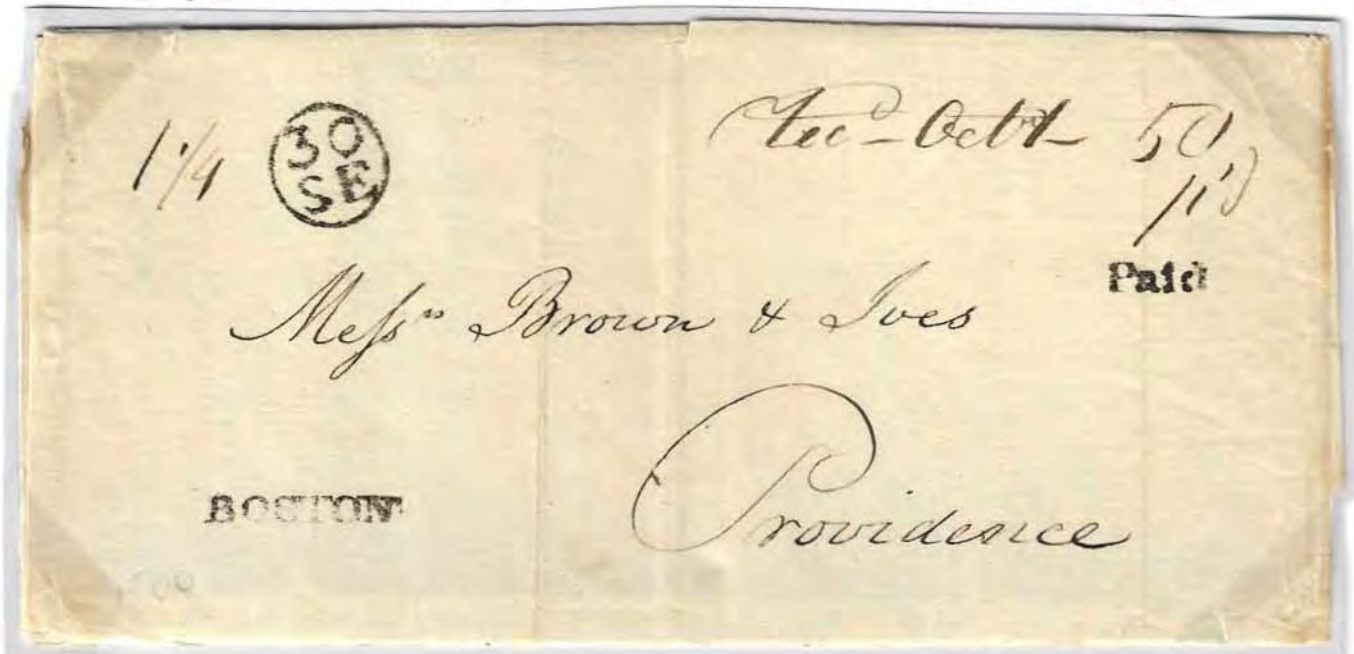 1 1/4
30
SE
Rec'd - Octb 1 -
50
Pd
Paid
Messrs Brown & Ives
Providence
BOSTON